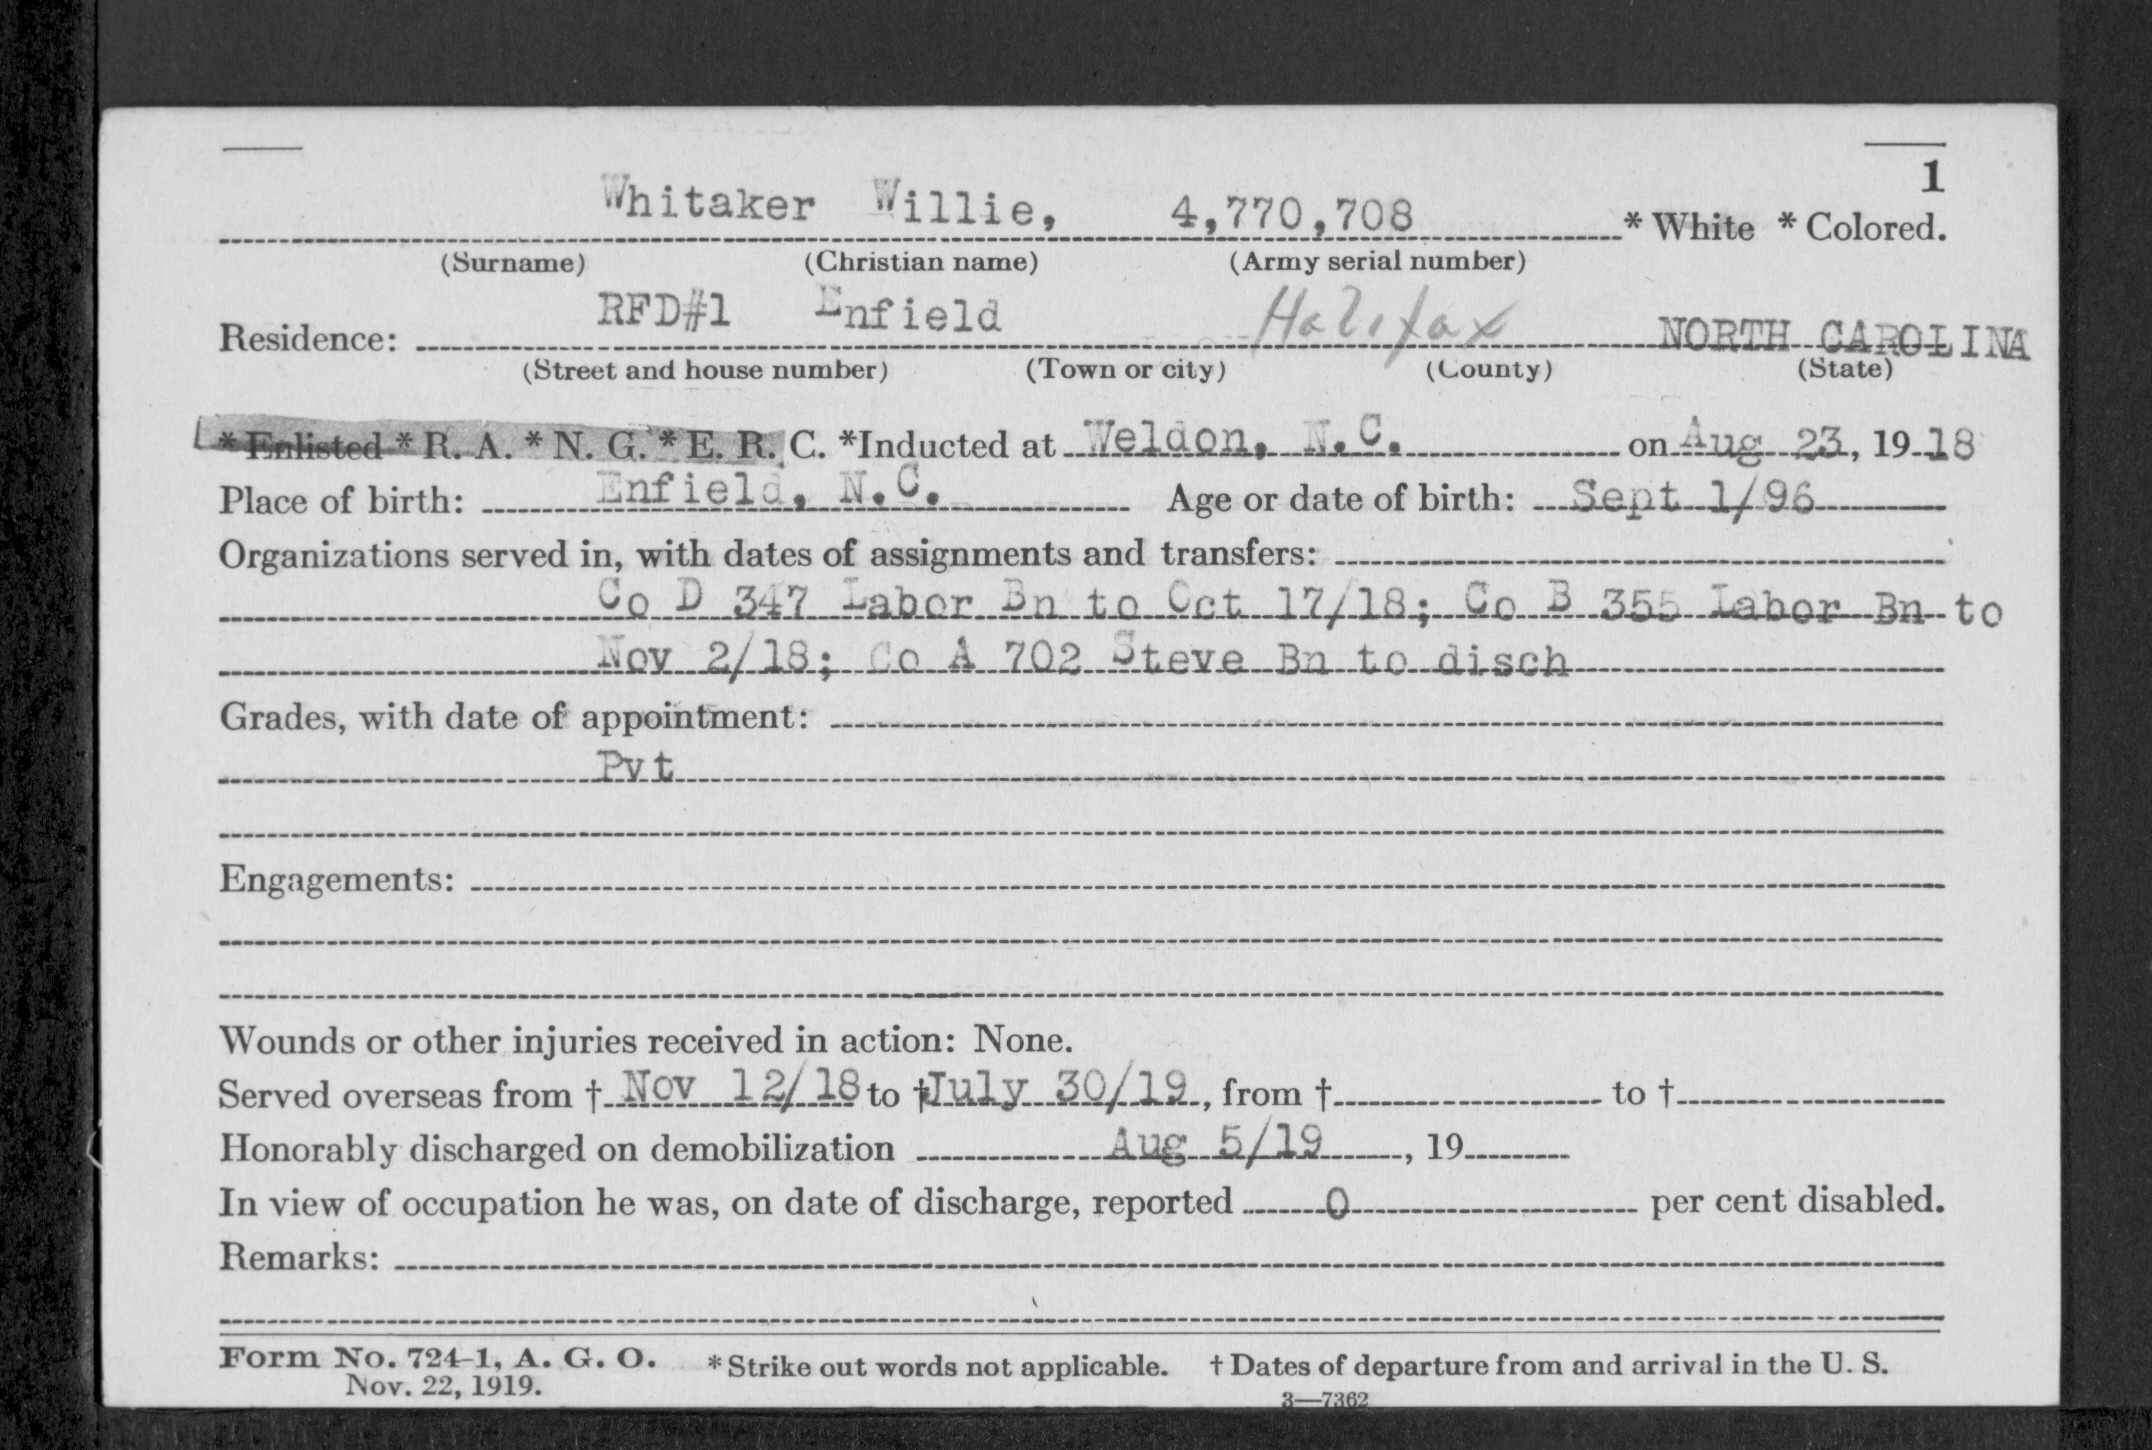 1
Whitaker Willie, 4,770,708 * White * Colored.
(Surname) (Christian name) (Army serial number)
Residence: RFD#1 Enfield Halifax NORTH CAROLINA
(Street and house number) (Town or city) (County) (State)
* Enlisted * R. A. * N. G. * E. R. C. *Inducted at Weldon, N.C. on Aug 23, 19 18
Place of birth: Enfield, N.C. Age or date of birth: Sept 1/96
Organizations served in, with dates of assignments and transfers:
Co D 347 Labor Bn to Oct 17/18; Co B 355 Labor Bn to
Nov 2/18; Co A 702 Steve Bn to disch
Grades, with date of appointment:
Pvt
Engagements:
Wounds or other injuries received in action: None.
Served overseas from † Nov 12/18 to † July 30/19, from † to †
Honorably discharged on demobilization Aug 5/19, 19
In view of occupation he was, on date of discharge, reported 0 per cent disabled.
Remarks:
Form No. 724-1, A. G. O. * Strike out words not applicable. † Dates of departure from and arrival in the U. S.
Nov. 22, 1919.
3—7362